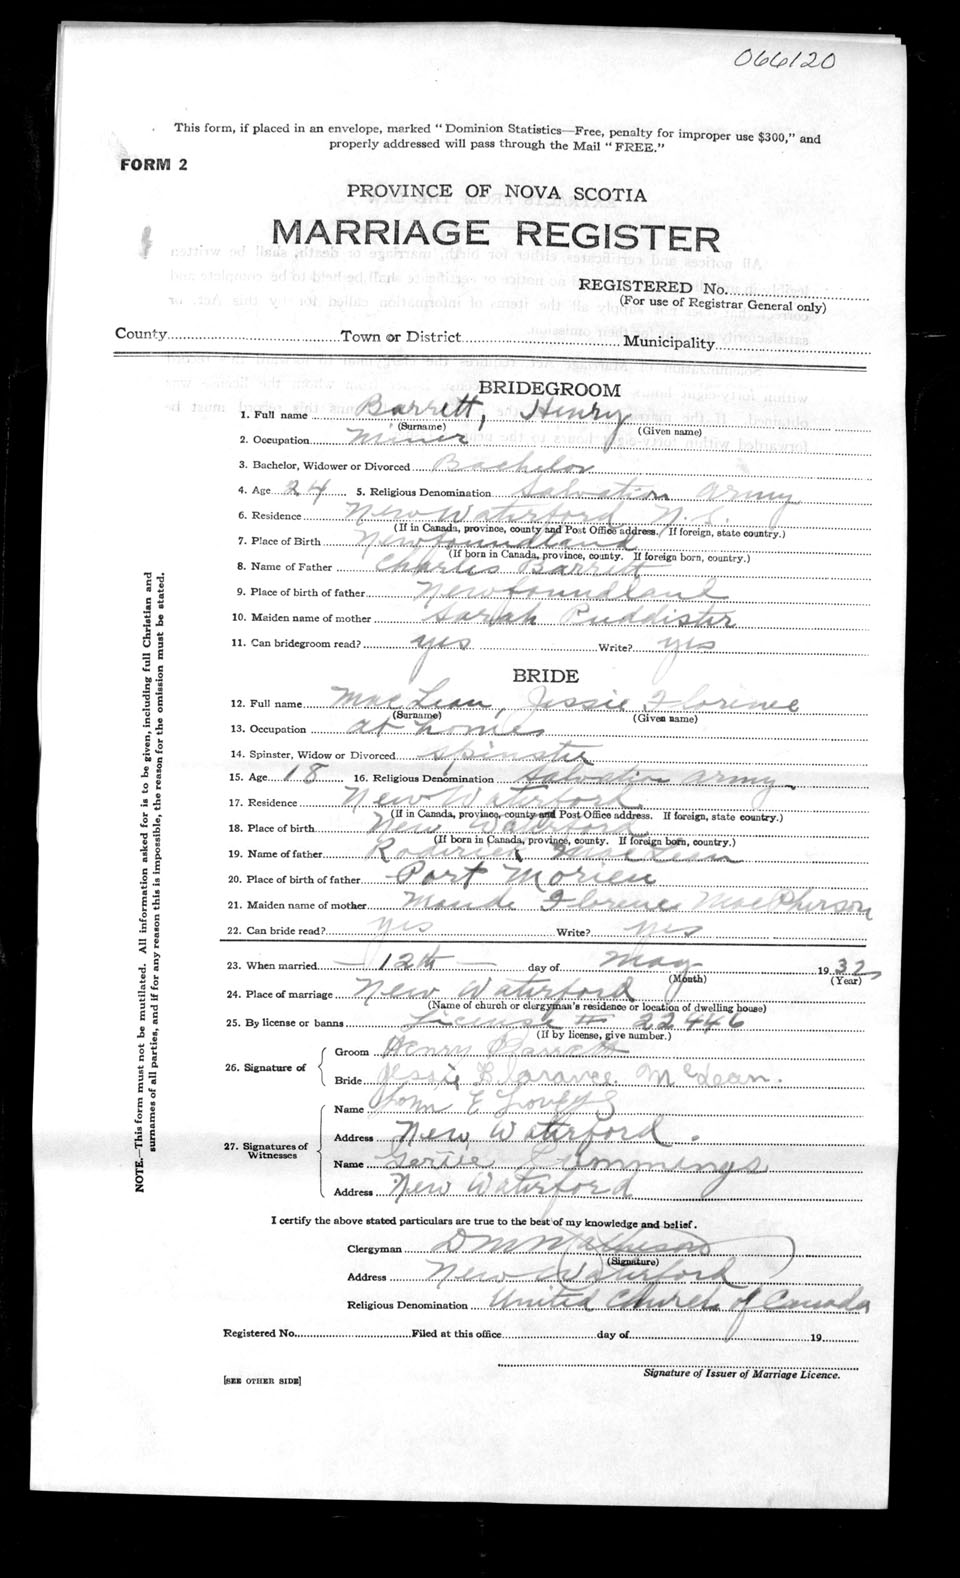 066120
This form, if placed in an envelope, marked "Dominion Statistics—Free, penalty for improper use $300," and
properly addressed will pass through the Mail "FREE."
FORM 2
PROVINCE OF NOVA SCOTIA
MARRIAGE REGISTER
REGISTERED No.
(For use of Registrar General only)
County Town or District Municipality
BRIDEGROOM
1. Full name Barrett, Henry
(Surname) (Given name)
2. Occupation Miner
3. Bachelor, Widower or Divorced Bachelor
4. Age 24 5. Religious Denomination Salvation Army
6. Residence New Waterford N.S.
(If in Canada, province, county and Post Office address. If foreign, state country.)
7. Place of Birth Newfoundland
(If born in Canada, province, county. If foreign born, country.)
8. Name of Father Charles Barrett
9. Place of birth of father Newfoundland
10. Maiden name of mother Sarah Puddister
11. Can bridegroom read? yes Write? yes
BRIDE
12. Full name MacLean, Jessie Florence
(Surname) (Given name)
13. Occupation at home
14. Spinster, Widow or Divorced Spinster
15. Age 18 16. Religious Denomination Salvation Army
17. Residence New Waterford
(If in Canada, province, county and Post Office address. If foreign, state country.)
18. Place of birth New Waterford
(If born in Canada, province, county. If foreign born, country.)
19. Name of father Roderick MacLean
20. Place of birth of father Port Morien
21. Maiden name of mother Maude Florence MacPherson
22. Can bride read? yes Write? yes
23. When married — 12th — day of May 1932
(Month) (Year)
24. Place of marriage New Waterford
(Name of church or clergyman's residence or location of dwelling house)
25. By license or banns License # 22446
(If by license, give number.)
26. Signature of
Groom Henry Barrett
Bride Jessie Florance McLean.
27. Signatures of Witnesses
Name John E
Address New Waterford.
Name Gertie Cummings
Address New Waterford
I certify the above stated particulars are true to the best of my knowledge and belief.
Clergyman D M Matheson
(Signature)
Address New Waterford
Religious Denomination United Church of Canada
Registered No. Filed at this office day of 19
Signature of Issuer of Marriage Licence.
[SEE OTHER SIDE]
NOTE.—This form must not be mutilated. All information asked for is to be given, including full Christian and
surnames of all parties, and if for any reason this is impossible, the reason for the omission must be stated.